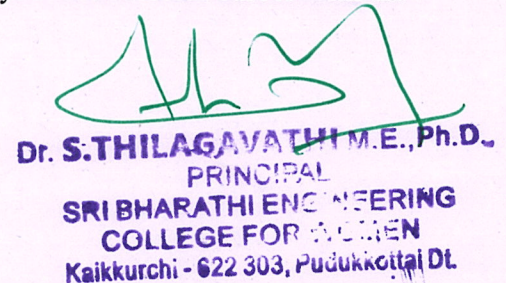 Dr. S.THILAGAVATHI M.E.,Ph.D.
PRINCIPAL
SRI BHARATHI ENGINEERING
COLLEGE FOR WOMEN
Kaikkurchi - 622 303, Pudukkottai Dt.